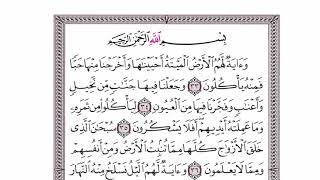 بِسْمِ اللَّهِ الرَّحْمَٰنِ الرَّحِيمِ
وَءَايَةٌ لَّهُمُ ٱلْأَرْضُ ٱلْمَيْتَةُ أَحْيَيْنَٰهَا وَأَخْرَجْنَا مِنْهَا حَبًّا
فَمِنْهُ يَأْكُلُونَ ٣٣ وَجَعَلْنَا فِيهَا جَنَّٰتٍ مِّن نَّخِيلٍ
وَأَعْنَٰبٍ وَفَجَّرْنَا فِيهَا مِنَ ٱلْعُيُونِ ٣٤ لِيَأْكُلُوا۟ مِن ثَمَرِهِۦ
وَمَا عَمِلَتْهُ أَيْدِيهِمْ أَفَلَا يَشْكُرُونَ ٣٥ سُبْحَٰنَ ٱلَّذِى
خَلَقَ ٱلْأَزْوَٰجَ كُلَّهَا مِمَّا تُنۢبِتُ ٱلْأَرْضُ وَمِنْ أَنفُسِهِمْ
وَمِمَّا لَا يَعْلَمُونَ ٣٦ وَءَايَةٌ لَّهُمُ ٱلَّيْلُ نَسْلَخُ مِنْهُ ٱلنَّهَارَ